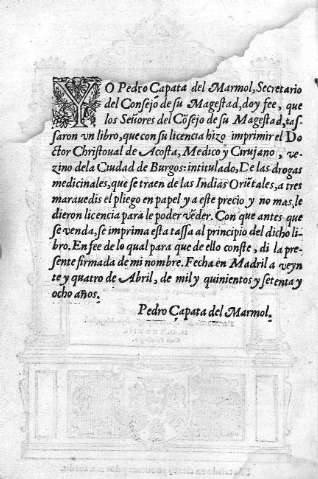 YO Pedro Çapata del Marmol, Secretario
del Consejo de su Magestad, doy fee, que
los Señores del Cõsejo de su Magestad, tas
saron vn libro, que con su licencia hizo imprimir el Do
ctor Christoual de Acosta, Medico y Cirujano, ve-
zino de la Ciudad de Burgos: intitulado, De las drogas
medicinales, que se traen de las Indias Oriẽtales, a tres
marauedis el pliego en papel y a este precio y no mas, le
dieron licencia para le poder vẽder. Con que antes que
se venda, se imprima esta tassa al principio del dicho li-
bro. En fee de lo qual para que de ello conste, di la pre-
sente firmada de mi nombre. Fecha en Madrid a veyn
te y quatro de Abril, de mil y quinientos y setenta y
ocho años.
Pedro Çapata del Marmol.